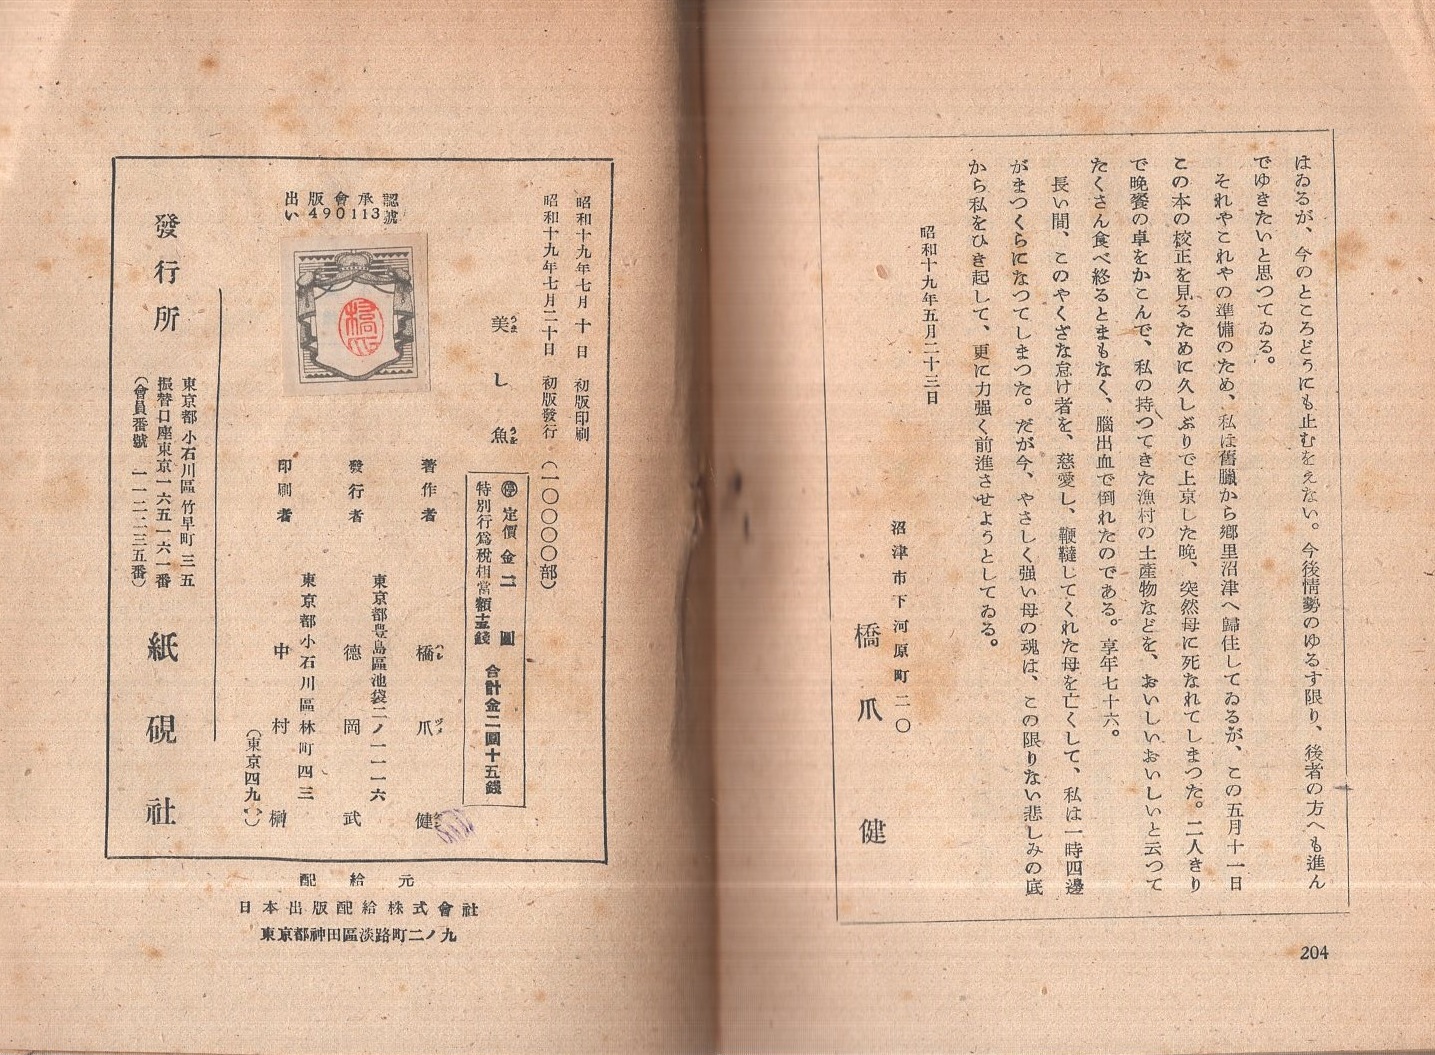 はゐるが、今のところどうにも止むをえない。今後情勢のゆるす限り、後者の方へも進ん
でゆきたいと思つてゐる。
それやこれやの準備のため、私は舊臘から鄕里沼津へ歸住してゐるが、この五月十一日
この本の校正を見るために久しぶりで上京した晩、突然母に死なれてしまつた。二人きり
で晩餐の卓をかこんで、私の持つてきた漁村の土産物などを、おいしいおいしいと云つて
たくさん食べ終るとまもなく、腦出血で倒れたのである。享年七十六。
長い間、このやくざな怠け者を、慈愛し、鞭韃してくれた母を亡くして、私は一時四邊
がまつくらになつてしまつた。だが今、やさしく強い母の魂は、この限りない悲しみの底
から私をひき起して、更に力强く前進させようとしてゐる。
昭和十九年五月二十三日
沼津市下河原町二〇
橋爪健
204
昭和十九年七月十日 初版印刷
昭和十九年七月二十日 初版發行 (一〇〇〇〇部)
美し魚
うま うを
停 定價金二圓
特別行爲稅相當額十五錢
合計金二圓十五錢
著作者 橋爪健
ハシ ヅメ
東京都豐島區池袋二ノ一一一六
發行者 德岡武
東京都小石川區林町四三
印刷者 中村榊
(東京四九
出版會承認
い490113號
橋
發行所 紙硯社
東京都小石川區竹早町三五
振替口座東京一六五一六一番
(會員番號 一一二二三五番)
配給元
日本出版配給株式會社
東京都神田區淡路町二ノ九